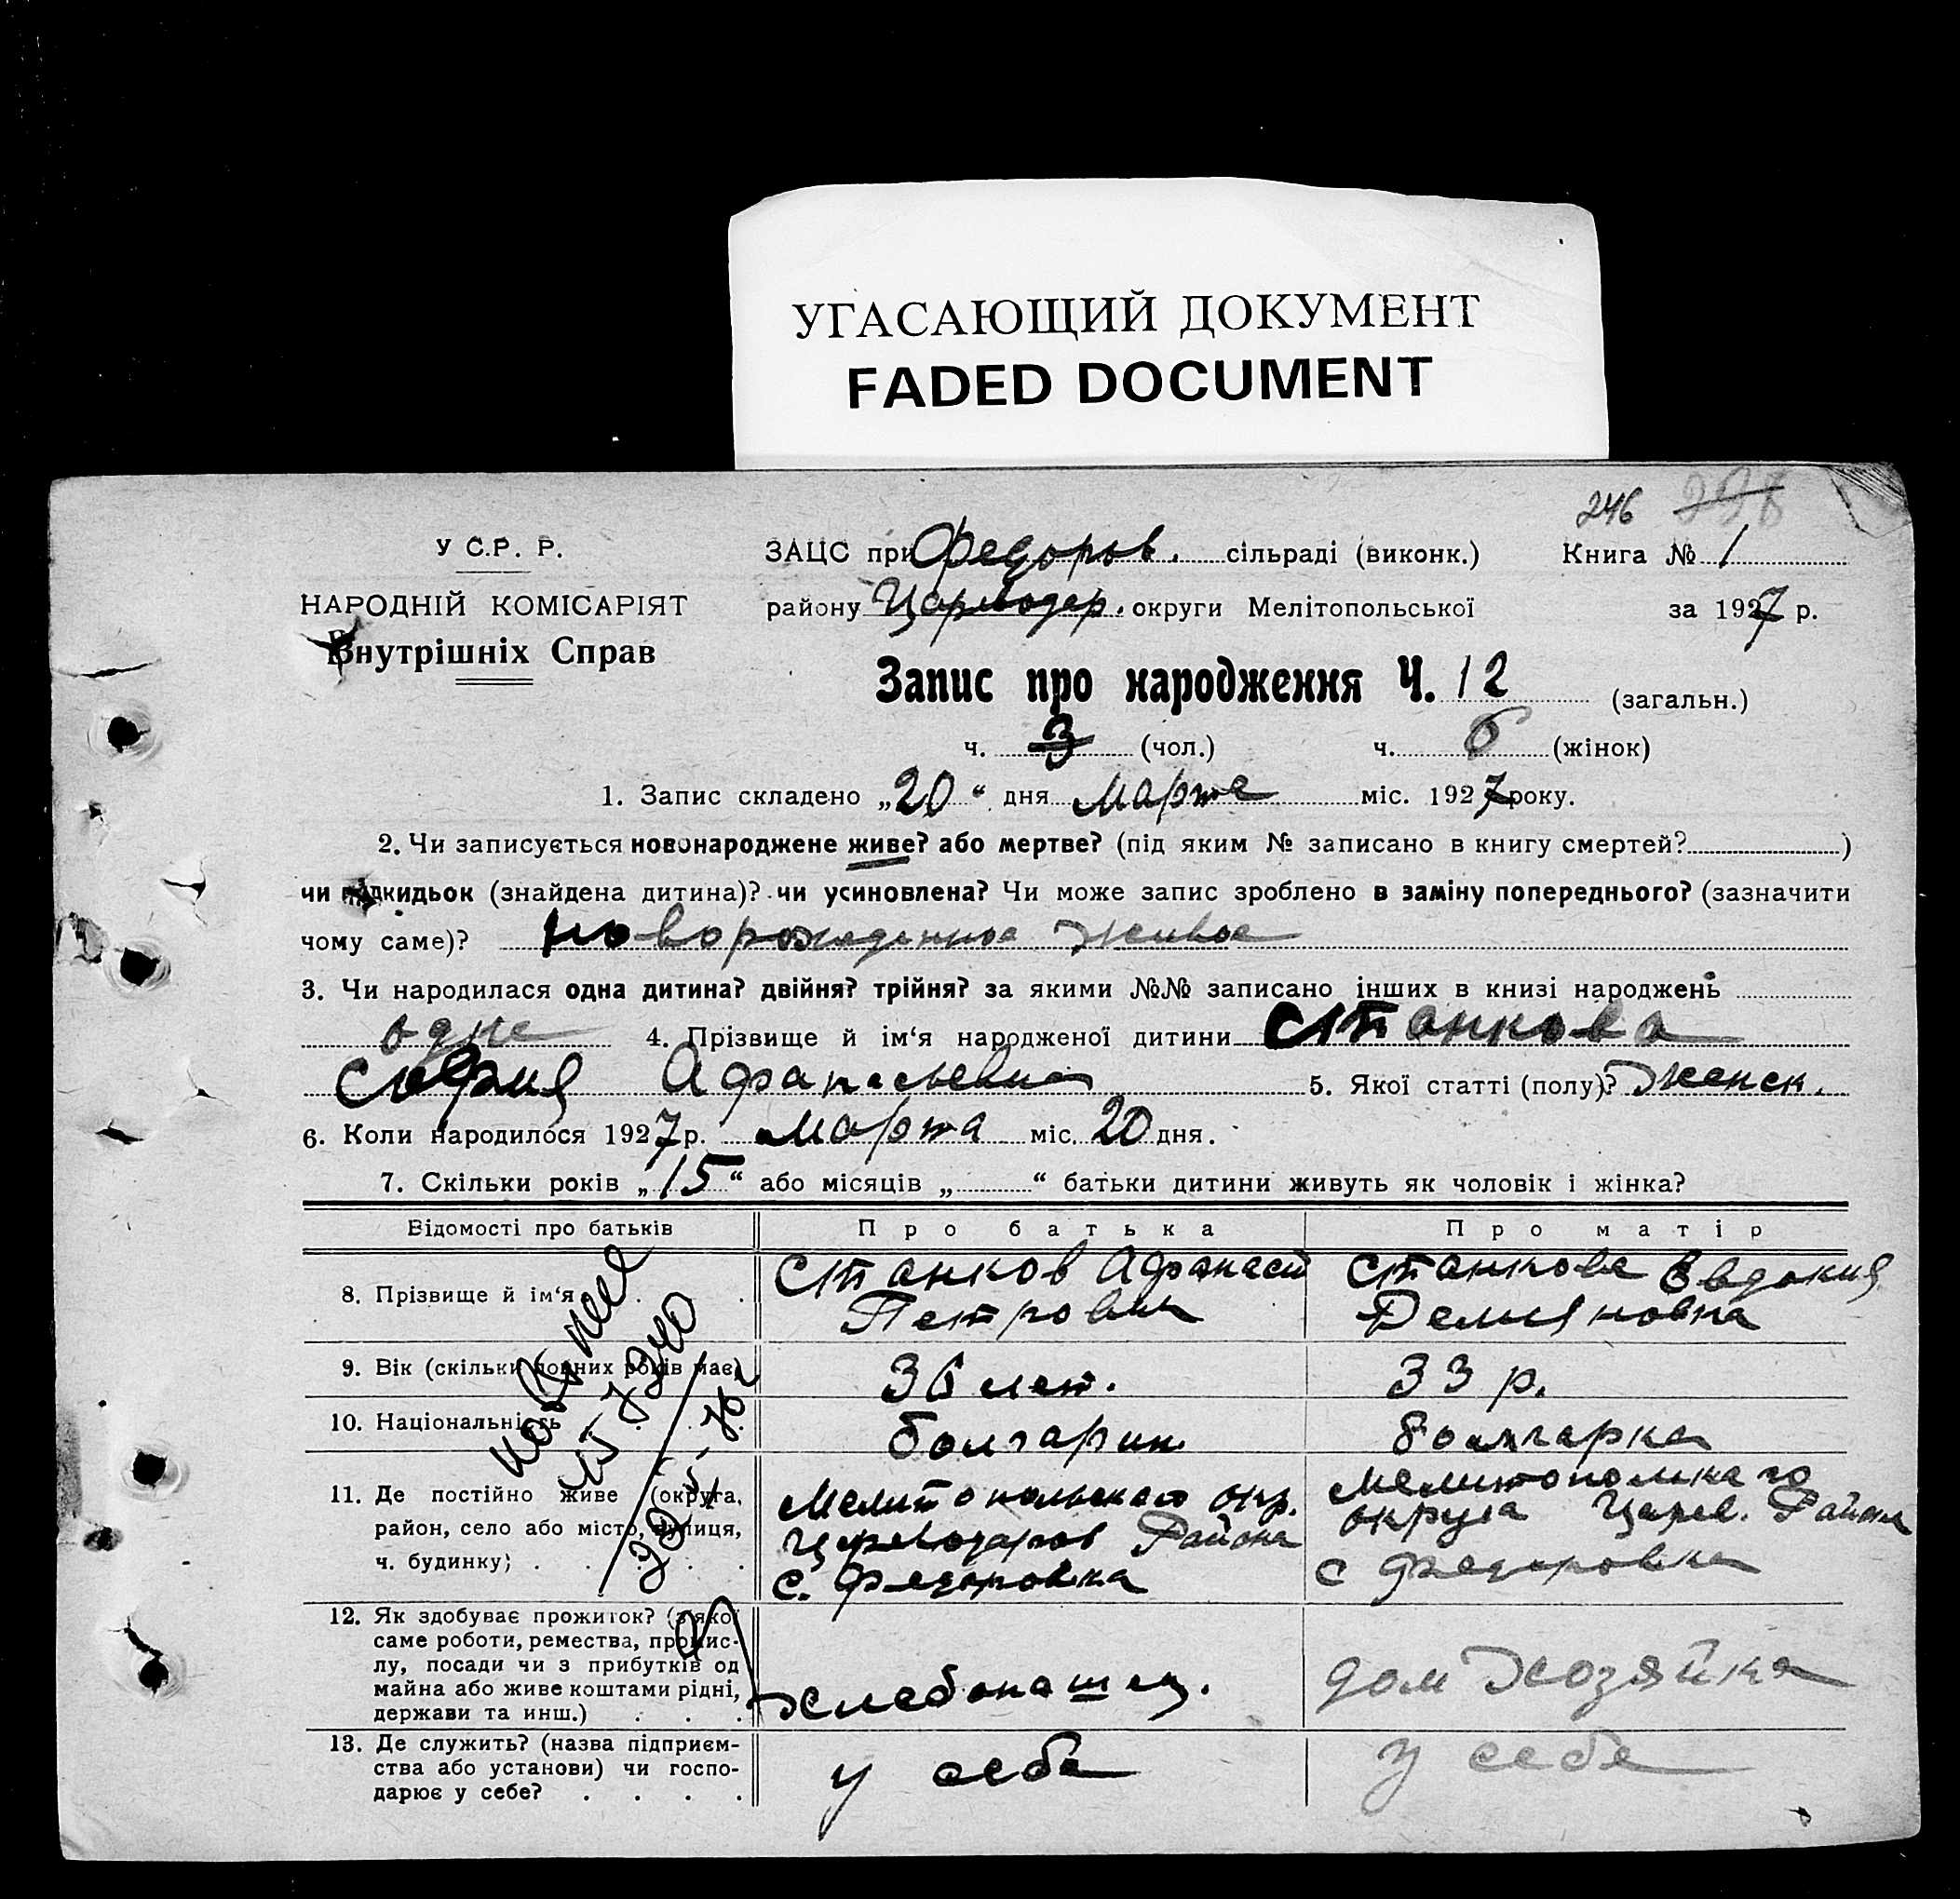 УГАСАЮЩИЙ ДОКУМЕНТ
FADED DOCUMENT
246 228
У С.Р. Р.
ЗАЦС при Федоров. сільраді (виконк.) Книга № 1
НАРОДНІЙ КОМІСАРІЯТ
району Цареводар. округи Мелітопольської за 1927 р.
Внутрішніх Справ
Запис про народження Ч. 12 (загальн.)
ч. 3 (чол.) ч. 6 (жінок)
1. Запис складено „20“ дня Марта міс. 1927 року.
2. Чи записується новонароджене живе? або мертве? (під яким № записано в книгу смертей? )
чи підкидьок (знайдена дитина)? чи усиновлена? Чи може запис зроблено в заміну попереднього? (зазначити
чому саме)? новорожденное живое
3. Чи народилася одна дитина? двійня? трійня? за якими №№ записано інших в книзі народжень
одне 4. Прізвище й ім‘я народженої дитини Станкова
София Афанасьевна 5. Якої статті (полу)? Женск.
6. Коли народилося 1927 р. Марта міс. 20 дня.
7. Скільки років „15“ або місяців „ “ батьки дитини живуть як чоловік і жінка?
Відомості про батьків Про батька Про матір
8. Прізвище й ім‘я Станков Афанасий Станкова Евдокия
Петрович Демияновна
9. Вік (скільки повних років має) 36 лет. 33 р.
10. Національність болгарин болгарка
11. Де постійно живе (округа, Мелитопольского окр. Мелитополька го
район, село або місто, вулиця, Цареводаров Района округа Царев. Район
ч. будинку) с. Федоровка с Федоровка
12. Як здобуває прожиток? (з якої
саме роботи, ремества, промис-
лу, посади чи з прибутків од
майна або живе коштами рідні, хлебопашец. дом хозяйка
держави та инш.)
13. Де служить? (назва підприєм-
ства або установи) чи госпо- у себе у себе
дарює у себе?